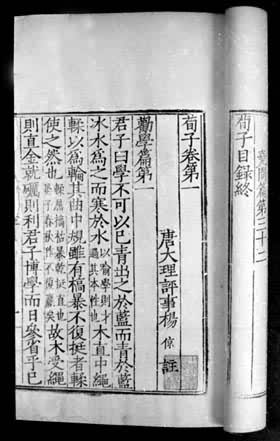 堯問篇第三十二
荀子目録終
荀子卷第一
唐大理評事楊 倞 註
勸學篇第一
君子曰學不可以已青出之於藍而青於藍
冰水爲之而寒於水以喻學則才過其本性也木直中繩
輮以爲輪其曲中規雖有槁暴不復挺者輮
使之然也輮屈槁枯暴乾挺直也晏子春秋作不復贏矣故木受繩
則直金就礪則利君子博學而日參省乎己